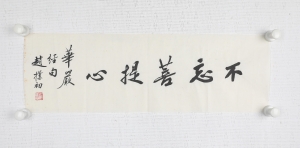 不忘菩提心
華嚴
經句
趙樸初